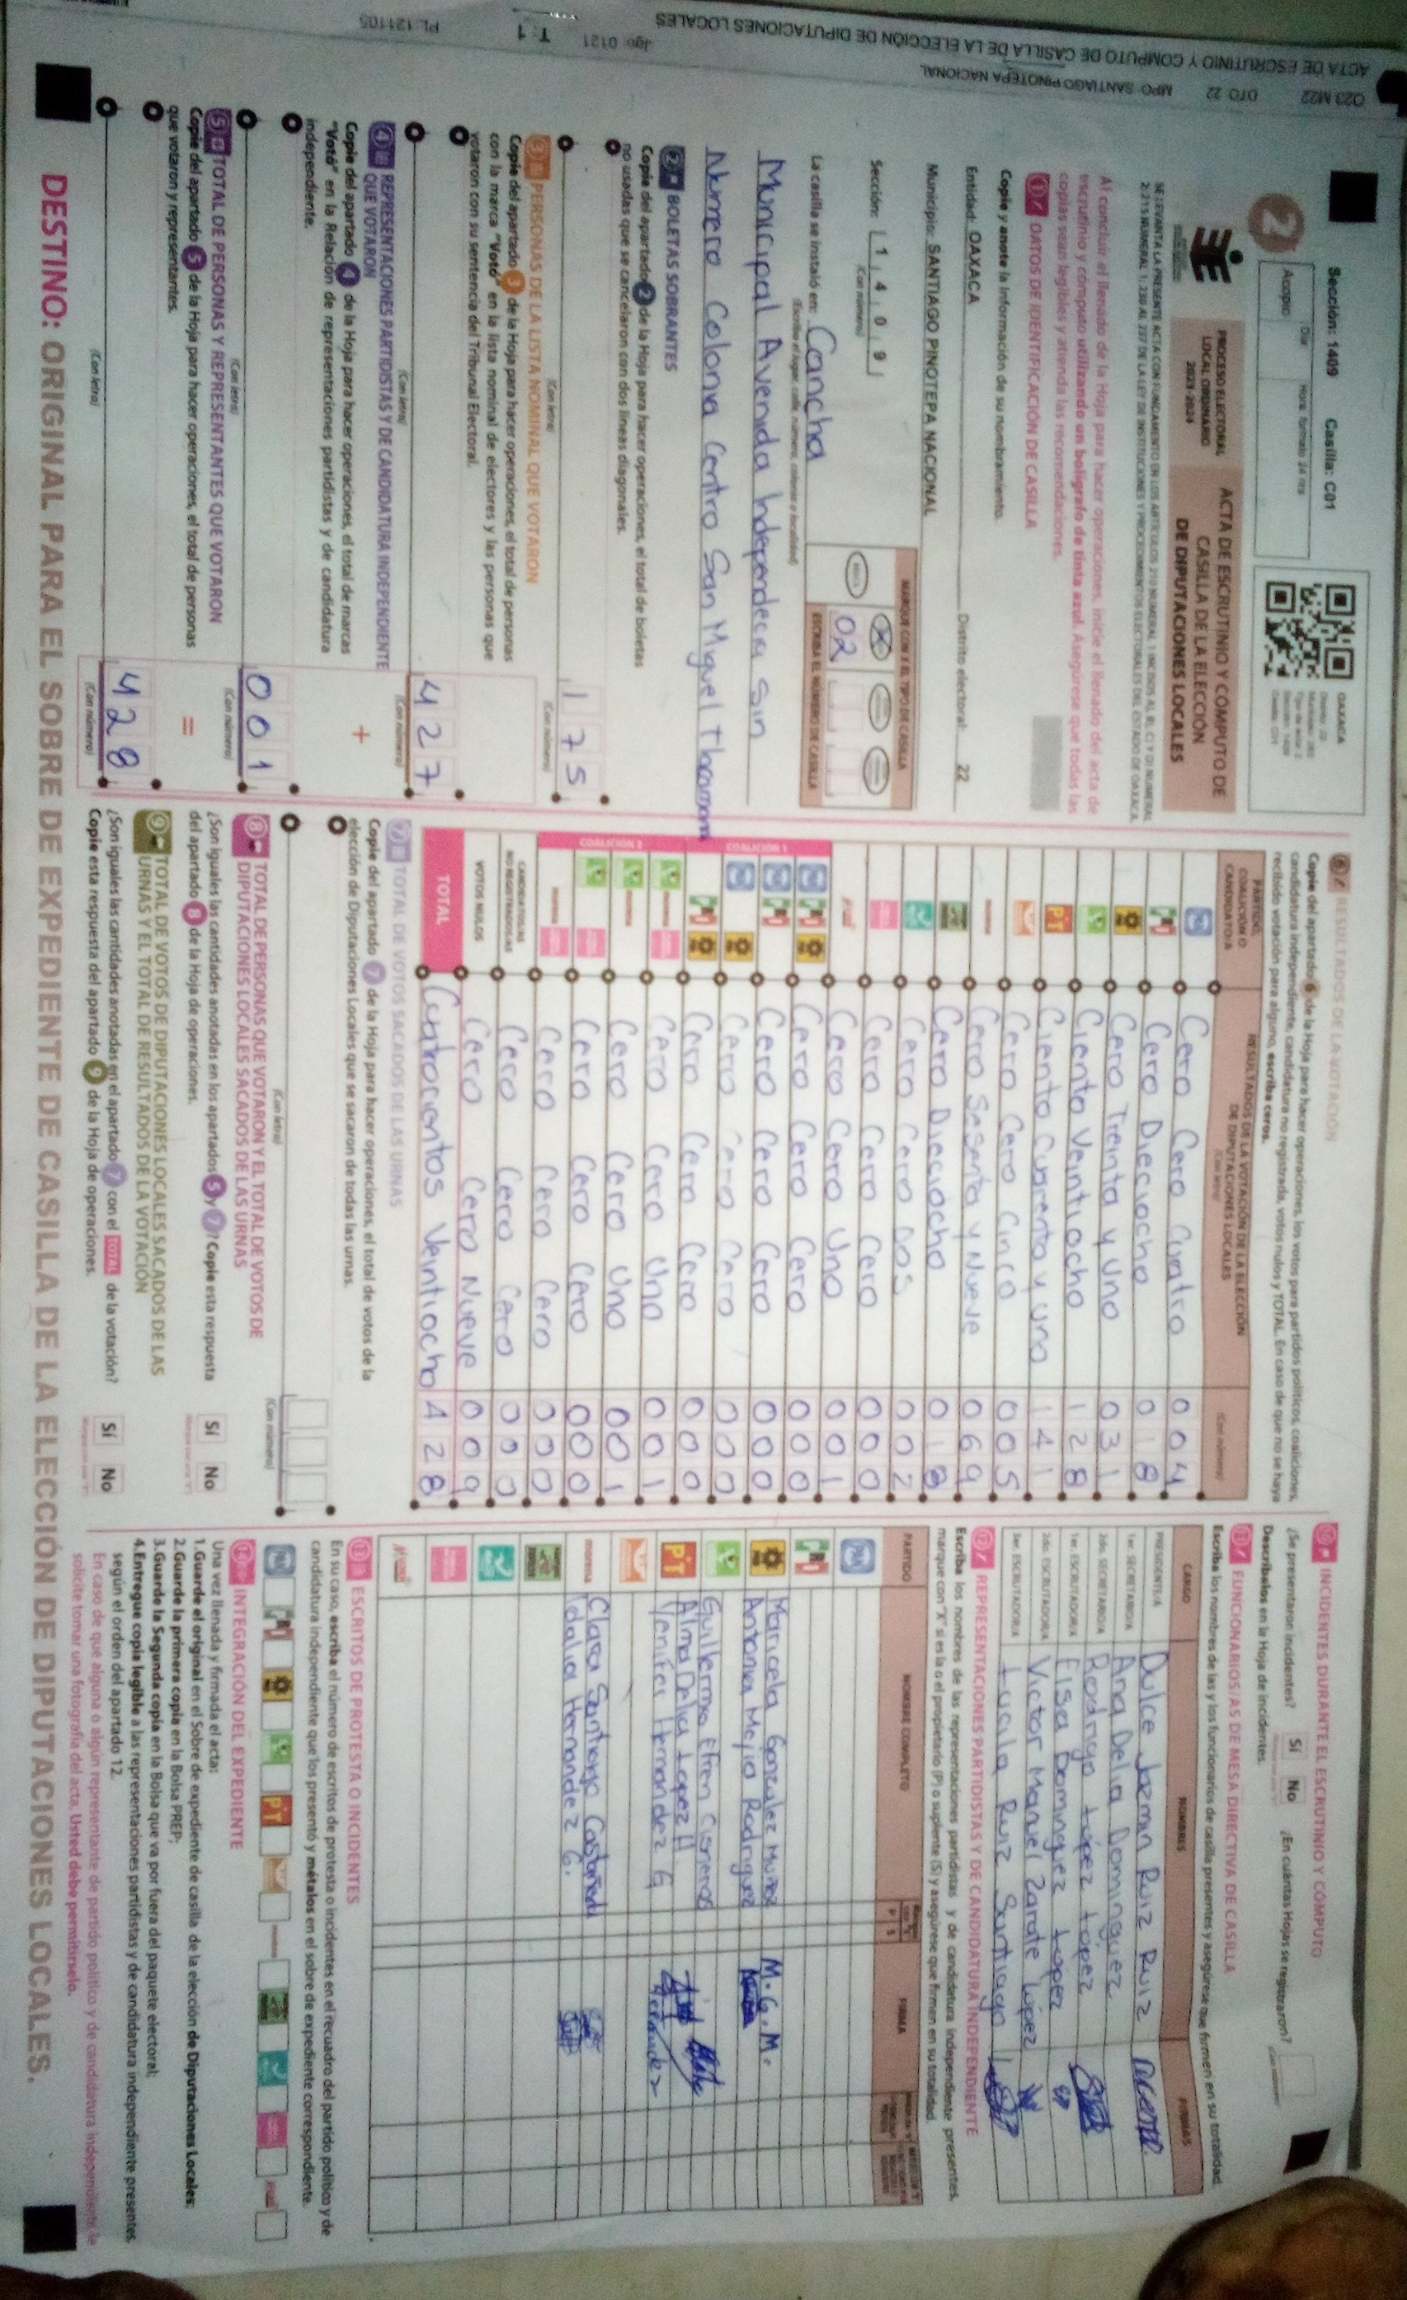 Sección: 1409 Casilla: C01
OAXACA
2
Acopio:
Día
Hora: formato 24 hrs
PROCESO ELECTORAL
LOCAL ORDINARIO
2023-2024
ACTA DE ESCRUTINIO Y CÓMPUTO DE
CASILLA DE LA ELECCIÓN
DE DIPUTACIONES LOCALES
Al concluir el llenado de la Hoja para hacer operaciones, inicie el llenado del acta de
escrutinio y cómputo utilizando un bolígrafo de tinta azul. Asegúrese que todas las
copias sean legibles y atienda las recomendaciones.
1 DATOS DE IDENTIFICACIÓN DE CASILLA
Copie y anote la información de su nombramiento.
Entidad: OAXACA Distrito electoral: 22
Municipio: SANTIAGO PINOTEPA NACIONAL
Sección: 1 4 0 9
(Con número)
MARQUE CON X EL TIPO DE CASILLA
ESCRIBA EL NÚMERO DE CASILLA
02
La casilla se instaló en: Cancha
(Escriba el lugar, calle, número, colonia o localidad)
Municipal Avenida Independecia Sin
Número Colonia Centro San Miguel Tlacamama
2 BOLETAS SOBRANTES
Copie del apartado 2 de la Hoja para hacer operaciones, el total de boletas
no usadas que se cancelaron con dos líneas diagonales.
1 7 5
(Con letra) (Con número)
3 PERSONAS DE LA LISTA NOMINAL QUE VOTARON
Copie del apartado 3 de la Hoja para hacer operaciones, el total de personas
con la marca "Votó" en la lista nominal de electores y las personas que
votaron con su sentencia del Tribunal Electoral.
4 2 7
(Con letra) (Con número)
4 REPRESENTACIONES PARTIDISTAS Y DE CANDIDATURA INDEPENDIENTE
QUE VOTARON
+
Copie del apartado 4 de la Hoja para hacer operaciones, el total de marcas
"Votó" en la Relación de representaciones partidistas y de candidatura
independiente.
0 0 1
(Con letra) (Con número)
5 TOTAL DE PERSONAS Y REPRESENTANTES QUE VOTARON
=
Copie del apartado 5 de la Hoja para hacer operaciones, el total de personas
que votaron y representantes.
4 2 8
(Con letra) (Con número)
6 RESULTADOS DE LA VOTACIÓN
Copie del apartado 6 de la Hoja para hacer operaciones, los votos para partidos políticos, coaliciones,
candidatura independiente, candidatura no registrada, votos nulos y TOTAL. En caso de que no se haya
recibido votación para alguno, escriba ceros.
PARTIDO,
COALICIÓN O
CANDIDATO/A
RESULTADOS DE LA VOTACIÓN DE LA ELECCIÓN
DE DIPUTACIONES LOCALES
(Con letra)
(Con número)
Cero Cero Cuatro 0 0 4
Cero Dieciocho 0 1 8
Cero Treinta y Uno 0 3 1
Ciento Veintiocho 1 2 8
PT Ciento Cuarenta y uno 1 4 1
Cero Cero Cinco 0 0 5
Cero Sesenta y Nueve 0 6 9
Cero Dieciocho 0 1 8
Cero Cero Dos 0 0 2
Cero Cero Cero 0 0 0
Cero Cero Uno 0 0 1
COALICIÓN 1
Cero Cero Cero 0 0 0
Cero Cero Cero 0 0 0
Cero Cero Cero 0 0 0
Cero Cero Cero 0 0 0
COALICIÓN 2
Cero Cero Uno 0 0 1
Cero Cero Uno 0 0 1
Cero Cero Cero 0 0 0
Cero Cero Cero 0 0 0
CANDIDATOS/AS
NO REGISTRADOS/AS
Cero Cero Cero 0 0 0
VOTOS NULOS Cero Cero Nueve 0 0 9
TOTAL Cuatrocientos Veintiocho 4 2 8
7 TOTAL DE VOTOS SACADOS DE LAS URNAS
Copie del apartado 7 de la Hoja para hacer operaciones, el total de votos de la
elección de Diputaciones Locales que se sacaron de todas las urnas.
(Con letra) (Con número)
8 TOTAL DE PERSONAS QUE VOTARON Y EL TOTAL DE VOTOS DE
DIPUTACIONES LOCALES SACADOS DE LAS URNAS
¿Son iguales las cantidades anotadas en los apartados 5 y 7? Copie esta respuesta
del apartado 8 de la Hoja de operaciones.
Sí No
9 TOTAL DE VOTOS DE DIPUTACIONES LOCALES SACADOS DE LAS
URNAS Y EL TOTAL DE RESULTADOS DE LA VOTACIÓN
¿Son iguales las cantidades anotadas en el apartado 7 con el TOTAL de la votación?
Copie esta respuesta del apartado 9 de la Hoja de operaciones.
Sí No
10 INCIDENTES DURANTE EL ESCRUTINIO Y CÓMPUTO
¿Se presentaron incidentes? Sí No ¿En cuántas Hojas se registraron?
Descríbalos en la Hoja de incidentes.
11 FUNCIONARIOS/AS DE MESA DIRECTIVA DE CASILLA
Escriba los nombres de las y los funcionarios de casilla presentes y asegúrese que firmen en su totalidad.
CARGO NOMBRES FIRMAS
PRESIDENTE/A Dulce Jazmin Ruiz Ruiz
1er. SECRETARIO/A Ana Delia Dominguez
2do. SECRETARIO/A Rodrigo López López
1er. ESCRUTADOR/A Elsa Dominguez López
2do. ESCRUTADOR/A Victor Manuel Zarate López
3er. ESCRUTADOR/A Lucila Ruiz Santiago
12 REPRESENTACIONES PARTIDISTAS Y DE CANDIDATURA INDEPENDIENTE
Escriba los nombres de las representaciones partidistas y de candidatura independiente presentes,
marque con "X" si es la o el propietario (P) o suplente (S) y asegúrese que firmen en su totalidad.
PARTIDO NOMBRE COMPLETO P S FIRMA
Maricela Gonzalez Muñoz M.G.M.
Antonia Mejia Rodriguez
Guillermo Efren Cisneros
PT Alma Delia Lopez H
Yenifer Hernandez G
Clara Santiago Castañeda
Idalia Hernandez G.
13 ESCRITOS DE PROTESTA O INCIDENTES
En su caso, escriba el número de escritos de protesta o incidentes en el recuadro del partido político y de
candidatura independiente que los presentó y métalos en el sobre de expediente correspondiente.
PT
14 INTEGRACIÓN DEL EXPEDIENTE
Una vez llenada y firmada el acta:
1.Guarde el original en el Sobre de expediente de casilla de la elección de Diputaciones Locales;
2.Guarde la primera copia en la Bolsa PREP;
3.Guarde la Segunda copia en la Bolsa que va por fuera del paquete electoral;
4.Entregue copia legible a las representaciones partidistas y de candidatura independiente presentes,
según el orden del apartado 12.
En caso de que alguna o algún representante de partido político y de candidatura independiente, le
solicite tomar una fotografía del acta, Usted debe permitírselo.
DESTINO: ORIGINAL PARA EL SOBRE DE EXPEDIENTE DE CASILLA DE LA ELECCIÓN DE DIPUTACIONES LOCALES.
ACTA DE ESCRUTINIO Y CÓMPUTO DE CASILLA DE LA ELECCIÓN DE DIPUTACIONES LOCALES
DTO 22 MPO: SANTIAGO PINOTEPA NACIONAL
T: 1
PL: 121105